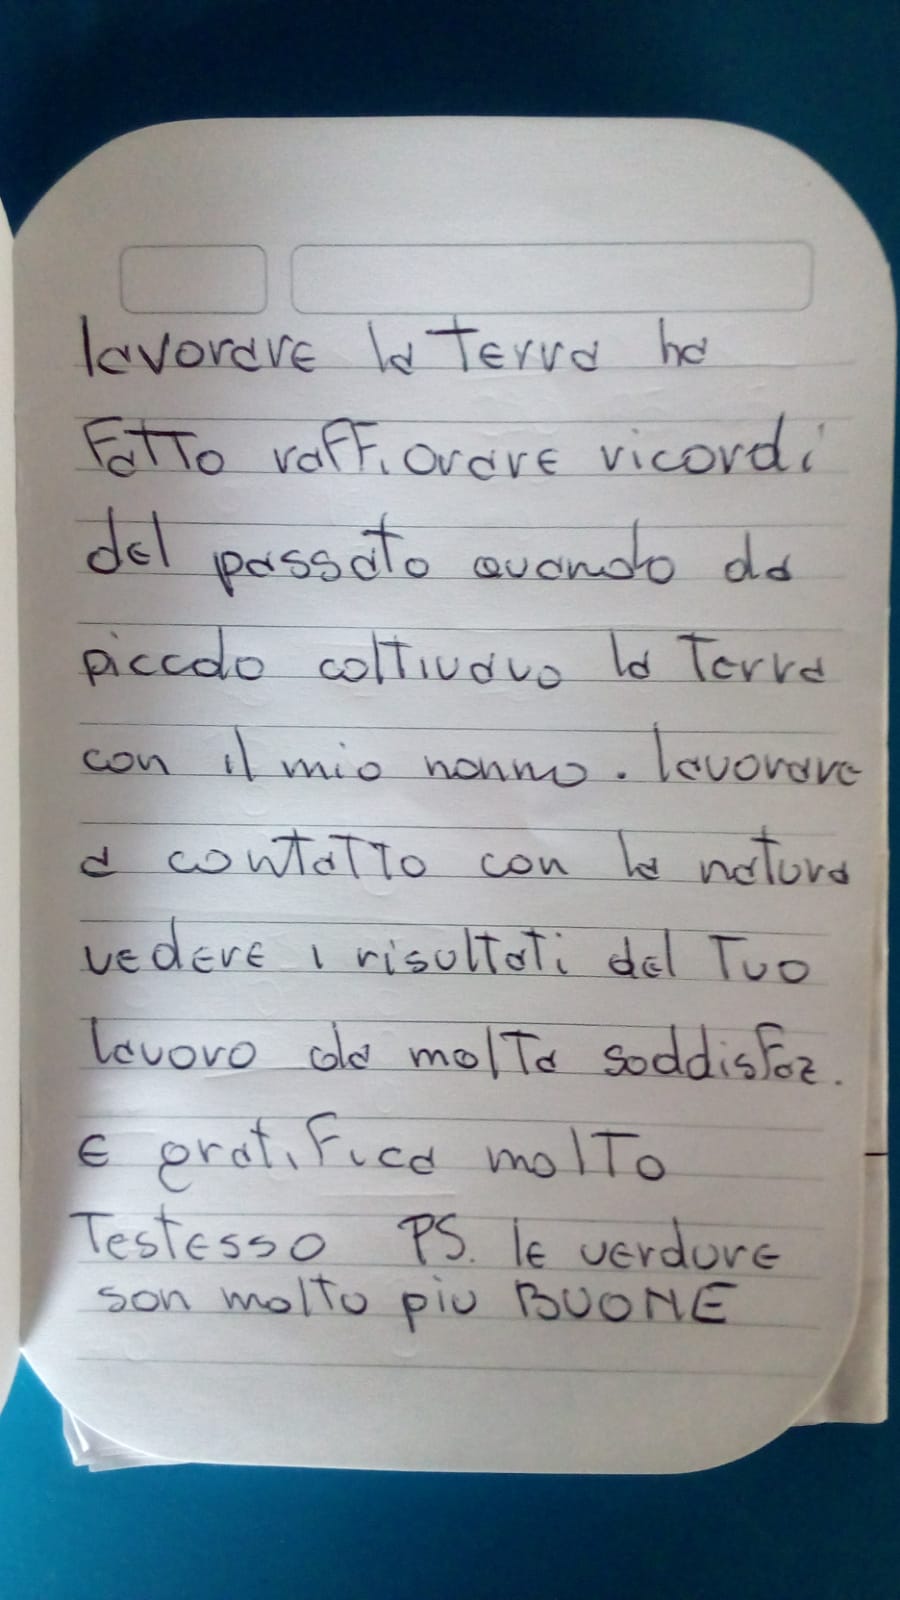 lavorare la Terra ha
Fatto raffiorare ricordi
del passato quando da
piccolo coltivavo la Terra
con il mio nonno. lavorare
a contatto con la natura
vedere i risultati del Tuo
lavoro da molta soddisfaz.
E gratifica molto
Testesso PS. le verdure
son molto piu BUONE